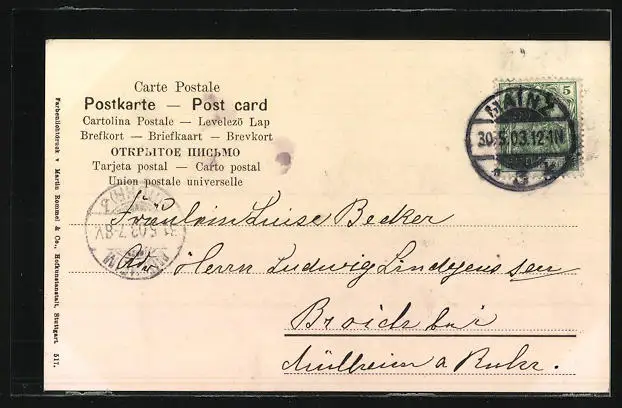 Carte Postale
Postkarte — Post card
Cartolina Postale — Levelező Lap
Brefkort — Briefkaart — Brevkort
ОТКРЫТОЕ ПИСЬМО
Tarjeta postal — Carto postal
Union postale universelle
5
MAINZ
30.5.03.12-1N
Fräulein Luise Becker
Adr. Herrn Ludwig Lindgens sen
Broich bei
Mülheim a Ruhr.
31.5.03.7-8V
Farbenlichtdruck v Martin Rommel & Co., Hofkunstanstalt, Stuttgart. 517.